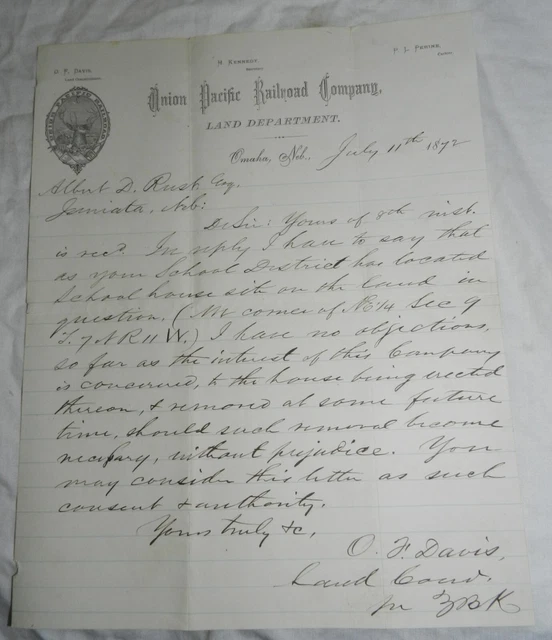 O. F. Davis,
Union Pacific Railroad Company,
LAND DEPARTMENT.
UNION PACIFIC RAILROAD
Omaha, Neb., July 11th 1872
Albert D. Rust Esq.
Juniata, Neb:
DeSir: Yours of 8th inst.
is recd. In reply I have to say that
as your School District has located
School house site on the land in
question. (NW corner of NE 1/4 Sec 9
T. 7 N R 11 W.) I have no objections,
so far as the interest of this Company
is concerned, to the house being erected
thereon, & removed at some future
time, should such removal become
necessary, without prejudice. You
may consider this letter as such
consent & authority.
Yours truly &c,
O. F. Davis,
Land Comr.